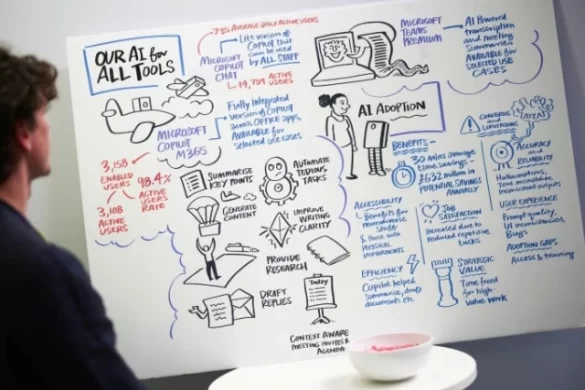 OUR AI for
ALL TOOLS
AVERAGE DAILY ACTIVE USERS
MICROSOFT
COPILOT
CHAT
Lite version of
COPILOT that can be
used by ALL STAFF
14,729 ACTIVE
USERS
MICROSOFT
COPILOT
M365
Fully integrated
version of COPILOT
across OFFICE APPS,
AVAILABLE for
selected use cases
3,158
ENABLED
USERS
98.4%
ACTIVE
USERS
RATE
3,108
ACTIVE
USERS
SUMMARISE
KEY POINTS
AUTOMATE
TEDIOUS
TASKS
GENERATE
CONTENT
IMPROVE
WRITING
CLARITY
PROVIDE
RESEARCH
DRAFT
REPLIES
Today
CONTEXT AWARE
MEETING INVITES &
AGENDA
MICROSOFT
TEAMS
PREMIUM
AI Powered
transcription
and meeting
summaries
AVAILABLE for
SELECTED USE
CASES
AI ADOPTION
BENEFITS
30 mins average
time savings
£632 million in
POTENTIAL SAVINGS
ANNUALLY
ACCESSIBILITY
Benefits for
neurodiverse
staff
& those with
PHYSICAL
IMPAIRMENTS
JOB
SATISFACTION
Increased due to
reduced repetitive
tasks
EFFICIENCY
Copilot helped
summarise, draft
documents etc.
STRATEGIC
VALUE
Time freed
for high-
value work
CONCERNS and
LIMITATIONS
ACCURACY
& RELIABILITY
Hallucinations,
inconsistent outputs
USER EXPERIENCE
Prompt quality,
UI inconsistencies,
Bugs
ADOPTION GAPS
Access & training